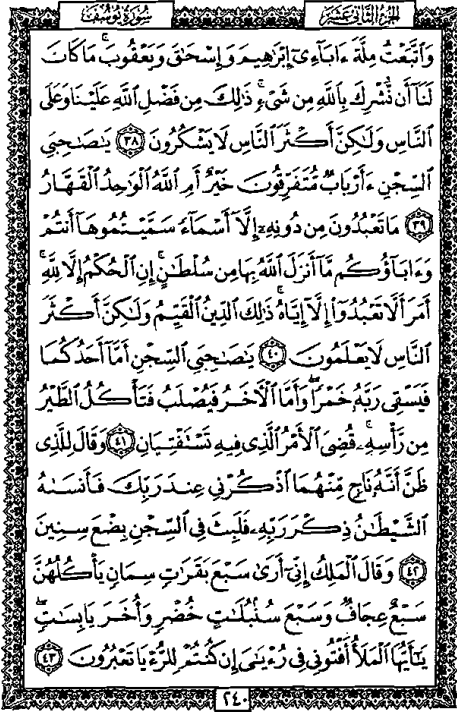 الجزء الثاني عشر
سورة يوسف
وَٱتَّبَعْتُ مِلَّةَ ءَابَآءِىٓ إِبْرَٰهِيمَ وَإِسْحَٰقَ وَيَعْقُوبَ ۚ مَا كَانَ
لَنَآ أَن نُّشْرِكَ بِٱللَّهِ مِن شَىْءٍ ۚ ذَٰلِكَ مِن فَضْلِ ٱللَّهِ عَلَيْنَا وَعَلَى
ٱلنَّاسِ وَلَٰكِنَّ أَكْثَرَ ٱلنَّاسِ لَا يَشْكُرُونَ ﴿٣٨﴾ يَٰصَٰحِبَىِ
ٱلسِّجْنِ ءَأَرْبَابٌ مُّتَفَرِّقُونَ خَيْرٌ أَمِ ٱللَّهُ ٱلْوَٰحِدُ ٱلْقَهَّارُ
﴿٣٩﴾ مَا تَعْبُدُونَ مِن دُونِهِۦٓ إِلَّآ أَسْمَآءً سَمَّيْتُمُوهَآ أَنتُمْ
وَءَابَآؤُكُم مَّآ أَنزَلَ ٱللَّهُ بِهَا مِن سُلْطَٰنٍ ۚ إِنِ ٱلْحُكْمُ إِلَّا لِلَّهِ ۚ
أَمَرَ أَلَّا تَعْبُدُوٓا۟ إِلَّآ إِيَّاهُ ۚ ذَٰلِكَ ٱلدِّينُ ٱلْقَيِّمُ وَلَٰكِنَّ أَكْثَرَ
ٱلنَّاسِ لَا يَعْلَمُونَ ﴿٤٠﴾ يَٰصَٰحِبَىِ ٱلسِّجْنِ أَمَّآ أَحَدُكُمَا
فَيَسْقِى رَبَّهُۥ خَمْرًا ۖ وَأَمَّا ٱلْءَاخَرُ فَيُصْلَبُ فَتَأْكُلُ ٱلطَّيْرُ
مِن رَّأْسِهِۦ ۚ قُضِىَ ٱلْأَمْرُ ٱلَّذِى فِيهِ تَسْتَفْتِيَانِ ﴿٤١﴾ وَقَالَ لِلَّذِى
ظَنَّ أَنَّهُۥ نَاجٍ مِّنْهُمَا ٱذْكُرْنِى عِندَ رَبِّكَ فَأَنسَىٰهُ
ٱلشَّيْطَٰنُ ذِكْرَ رَبِّهِۦ فَلَبِثَ فِى ٱلسِّجْنِ بِضْعَ سِنِينَ
﴿٤٢﴾ وَقَالَ ٱلْمَلِكُ إِنِّىٓ أَرَىٰ سَبْعَ بَقَرَٰتٍ سِمَانٍ يَأْكُلُهُنَّ
سَبْعٌ عِجَافٌ وَسَبْعَ سُنۢبُلَٰتٍ خُضْرٍ وَأُخَرَ يَابِسَٰتٍ ۖ
يَٰٓأَيُّهَا ٱلْمَلَأُ أَفْتُونِى فِى رُءْيَٰىَ إِن كُنتُمْ لِلرُّءْيَا تَعْبُرُونَ ﴿٤٣﴾
٢٤٠